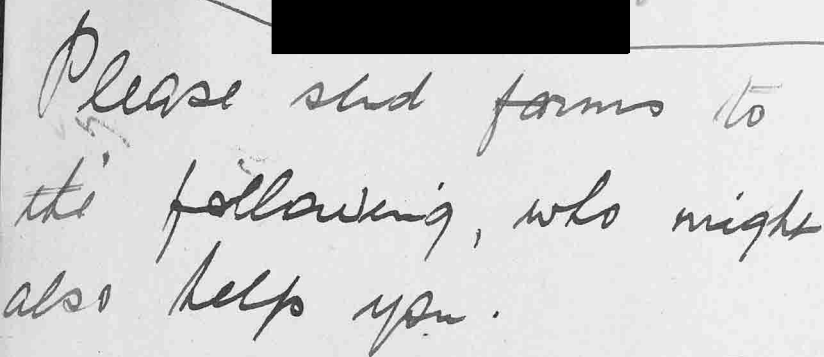 Please send forms to
the following, who might
also help you.